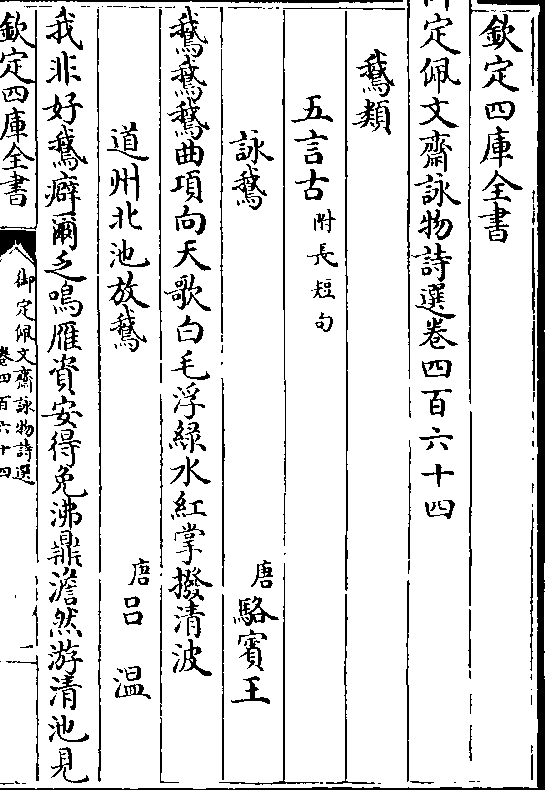 欽定四庫全書
御定佩文齋詠物詩選卷四百六十四
鵝類
五言古附長短句
詠鵝 唐駱賓王
鵞鵞鵞曲項向天歌白毛浮緑水紅掌撥清波
道州北池放鵞 唐吕温
我非好鵞癖爾乏鳴雁資安得免沸鼎澹然游清池見
欽定四庫全書
御定佩文齋詠物詩選
卷四百六十四